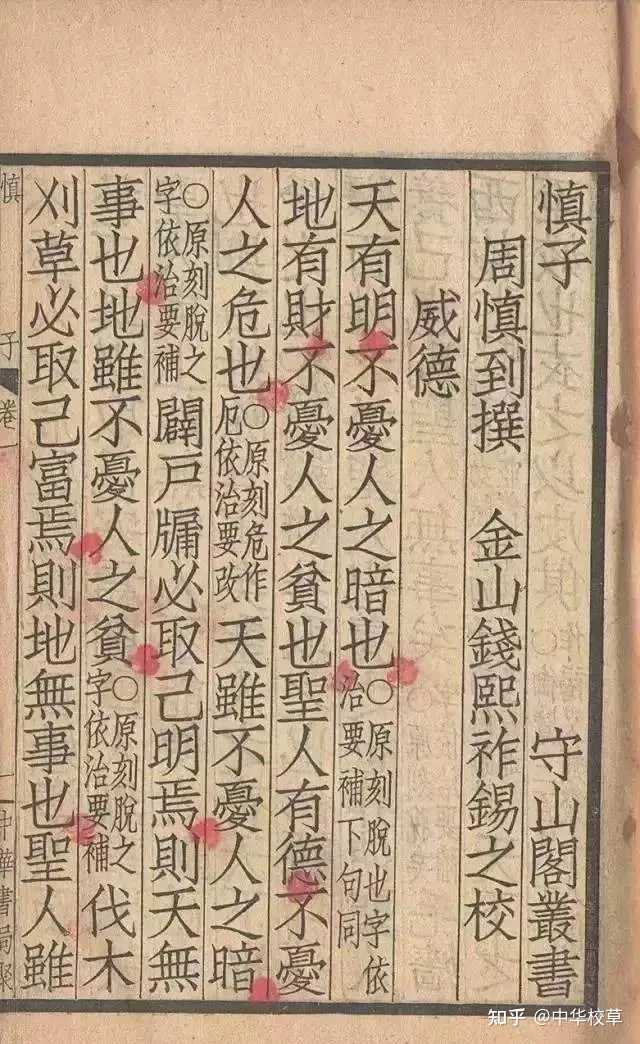 慎子 守山閣叢書
周慎到撰 金山錢熙祚錫之校
威德
天有明不憂人之暗也○原刻脫也字依治要補下句同
地有財不憂人之貧也聖人有德不憂
人之危也○原刻危作厄依治要改天雖不憂人之暗
○原刻脫之字依治要補闢戶牖必取己明焉則天無
事也地雖不憂人之貧○原刻脫之字依治要補伐木
刈草必取己富焉則地無事也聖人雖
慎子 卷 一 中華書局聚
知乎 @中华校草